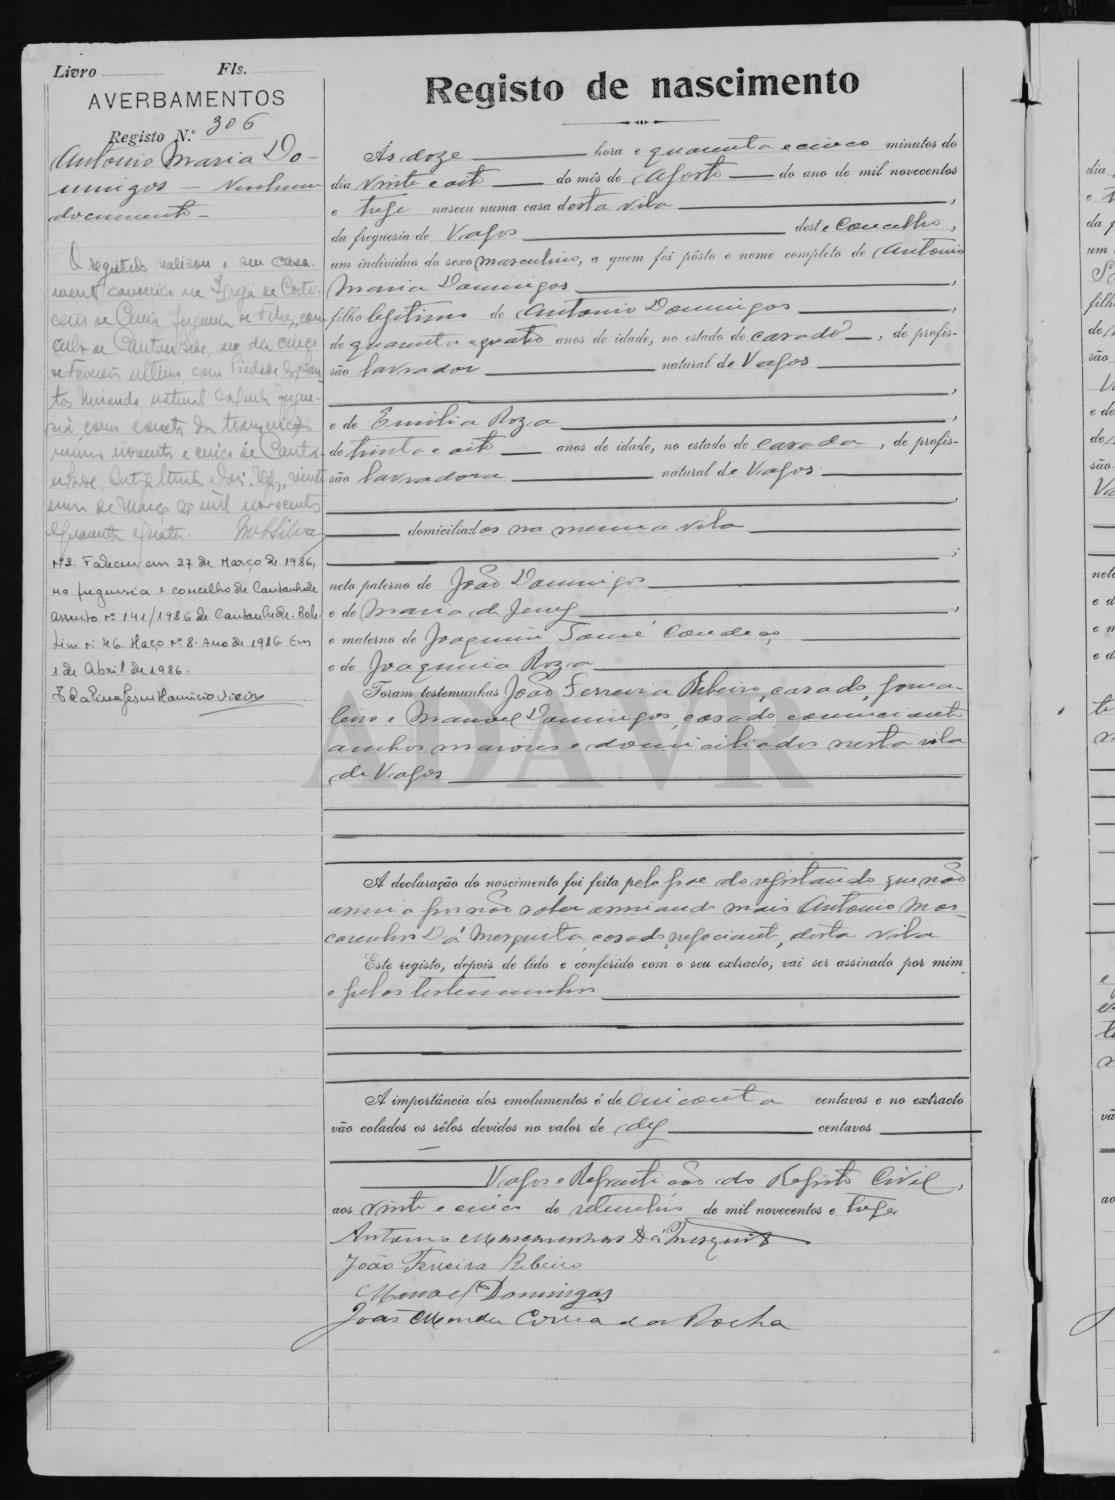 Livro Fls.
AVERBAMENTOS
Registo N.º 306
Antonio Maria Do-
mingos — Nenhum
documento —
O registado realisou o seu casa-
mento canonico na Igreja de Corti-
ceiro de Cima freguesia de Febres, con-
celho de Cantanhede, no dia cinco
de Fevereiro ultimo, com Piedade dos San-
tos Miranda, natural da freguesia
sia, como consta da transcrição
numero noventa e cinco de Canta-
nhede. Vagos, vinte
um de Março de mil novecentos
e quarenta e quatro.
Nº2. Faleceu em 27 de Março de 1986,
na freguesia e concelho de Cantanhede
assento nº 141/1986 de Cantanhede. Bole-
tim nº 46. Maço nº 8. Ano de 1986. Em
1 de Abril de 1986.
Registo de nascimento
Ás doze hora e quarenta e cinco minutos do
dia vinte e oito do mês de Agosto do ano de mil novecentos
e treze nasceu numa casa desta vila,
da freguesia de Vagos deste Concelho,
um indivíduo do sexo masculino, a quem foi pôsto o nome completo de Antonio
Maria Domingos,
filho legitimo de Antonio Domingos,
de quarenta e quatro anos de idade, no estado de casado, de profis-
são lavrador natural de Vagos
,
e de Emilia Roza,
de trinta e oito anos de idade, no estado de casada, de profis-
são lavradora natural de Vagos
,
domiciliados na mesma vila
;
neto paterno de João Domingos
e de Maria de Jesus,
e materno de Joaquim Tomé Condeço
e de Joaquina Roza
Foram testemunhas João Ferreira Ribeiro, casado, jorna-
leiro e Manoel Domingos casado comerciante
ambos maiores e domiciliados nesta vila
de Vagos
ADAVR
A declaração do nascimento foi feita pelo pae do registando que não
assina por não saber assinando mais Antonio Mas-
carenhas Dá Mesquita, casado, negociante, desta vila
Este registo, depois de lido e conferido com o seu extracto, vai ser assinado por mim
e pelas testemunhas
A importância dos emolumentos é de cincoenta centavos e no extracto
vão colados os sêlos devidos no valor de dez centavos
Vagos e Repartição do Registo Civil,
aos vinte e cinco de setembro de mil novecentos e treze
Antonio Mascarenhas Dá Mesquita
João Ferreira Ribeiro
Manoel Domingos
João Mendes Correia da Rocha